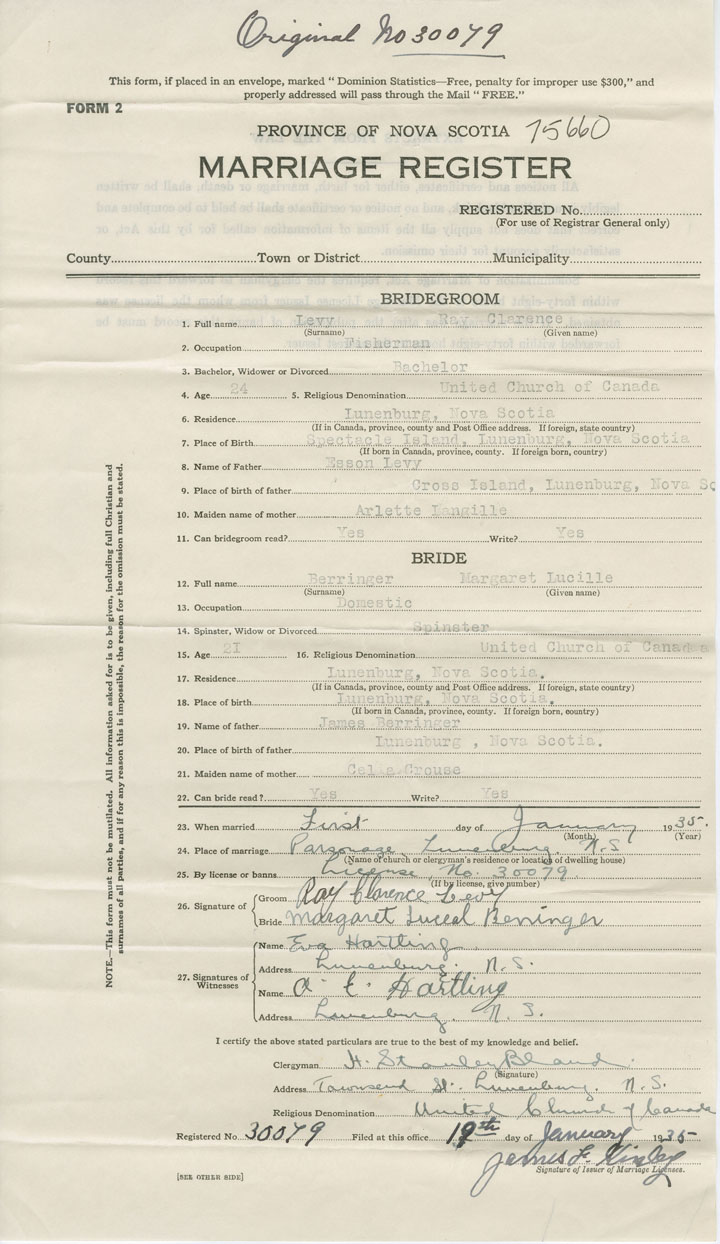 Original No 30079
This form, if placed in an envelope, marked “ Dominion Statistics—Free, penalty for improper use $300,” and
properly addressed will pass through the Mail “ FREE.”
FORM 2
PROVINCE OF NOVA SCOTIA 15660
MARRIAGE REGISTER
REGISTERED No.
(For use of Registrar General only)
County Town or District Municipality
BRIDEGROOM
1. Full name Levy Ray Clarence
(Surname) (Given name)
2. Occupation Fisherman
3. Bachelor, Widower or Divorced Bachelor
4. Age 24 5. Religious Denomination United Church of Canada
6. Residence Lunenburg, Nova Scotia
(If in Canada, province, county and Post Office address. If foreign, state country)
7. Place of Birth Spectacle Island, Lunenburg, Nova Scotia
(If born in Canada, province, county. If foreign born, country)
8. Name of Father Esson Levy
9. Place of birth of father Cross Island, Lunenburg, Nova Sc
10. Maiden name of mother Arlette Langille
11. Can bridegroom read? Yes Write? Yes
BRIDE
12. Full name Berringer Margaret Lucille
(Surname) (Given name)
13. Occupation Domestic
14. Spinster, Widow or Divorced Spinster
15. Age 21 16. Religious Denomination United Church of Canada
17. Residence Lunenburg, Nova Scotia.
(If in Canada, province, county and Post Office address. If foreign, state country)
18. Place of birth Lunenburg, Nova Scotia.
(If born in Canada, province, county. If foreign born, country)
19. Name of father James Berringer
20. Place of birth of father Lunenburg , Nova Scotia.
21. Maiden name of mother Celia Crouse
22. Can bride read ? Yes Write? Yes
23. When married First day of January 1935.
(Month) (Year)
24. Place of marriage Parsonage, Lunenburg, N.S
(Name of church or clergyman's residence or location of dwelling house)
25. By license or banns License, No. 30079
(If by license, give number)
26. Signature of Groom Ray Clarence Levy
Bride Margaret Luceal Berringer
27. Signatures of Witnesses Name Eva Hartling
Address Lunenburg. N.S.
Name A. E. Hartling
Address Lunenburg. N.S.
I certify the above stated particulars are true to the best of my knowledge and belief.
Clergyman H. Stanley Bland.
(Signature)
Address Townsend St. Lunenburg. N.S.
Religious Denomination United Church of Canada
Registered No 30079 Filed at this office 19th day of January 1935
James F. Kinley
Signature of Issuer of Marriage Licenses.
[SEE OTHER SIDE]
NOTE.—This form must not be mutilated. All information asked for is to be given, including full Christian and
surnames of all parties, and if for any reason this is impossible, the reason for the omission must be stated.